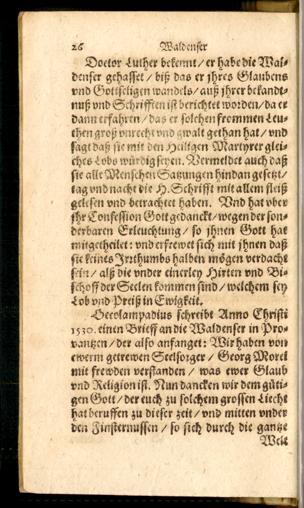 26 Waldenser
Doctor Luther bekennt / er habe die Wal-
denser gehasset / biß das er jhres Glaubens
vnd Gottseligen wandels / auß jhrer bekandt-
nuß vnd Schrifften ist berichtet worden / da er
dann erfahren / das er solchen frommen Leu-
then groß vnrecht vnd gwalt gethan hat / vnd
sagt daß sie mit den Heiligen Martyrer glei-
ches Lobs würdig seyen. Vermeldet auch daß
sie alle Menschen Satzungen hindan gesetzt /
tag vnd nacht die H. Schrifft mit allem fleiß
gelesen vnd betrachtet haben. Vnd hat vber
jhr Confession Gott gedanckt / wegen der son-
derbaren Erleuchtung / so jhnen Gott hat
mitgetheilet: vnd erfrewet sich mit jhnen daß
sie keines Irrthumbs halben mögen verdacht
sein / alß die vnder einerley Hirten vnd Bi-
schoff der Seelen kommen sind / welchem sey
Lob vnd Preiß in Ewigkeit.
Oecolampadius schreibt Anno Christi
1530. einen Brieff an die Waldenser in Pro-
vantzen / der also anfanget: Wir haben von
ewerm getrewen Seelsorger / Georg Morel
mit frewden verstanden / was ewer Glaub
vnd Religion ist. Nun dancken wir dem güti-
gen Gott / der euch zu solchem grossen Liecht
hat beruffen zu dieser zeit / vnd mitten vnder
den Finsternussen / so sich durch die gantze
Welt